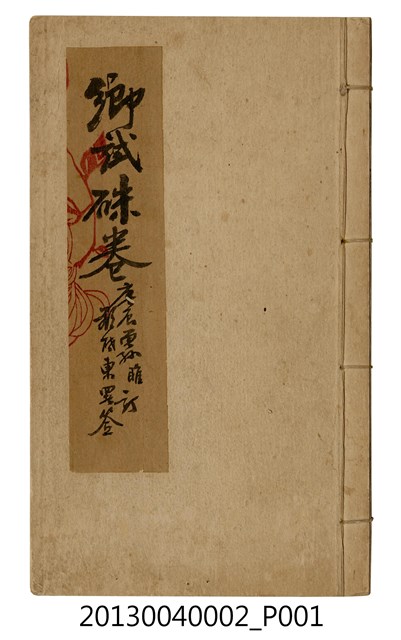 鄉試硃卷
庚辰雲孫雎訂
東署签
20130040002_P001